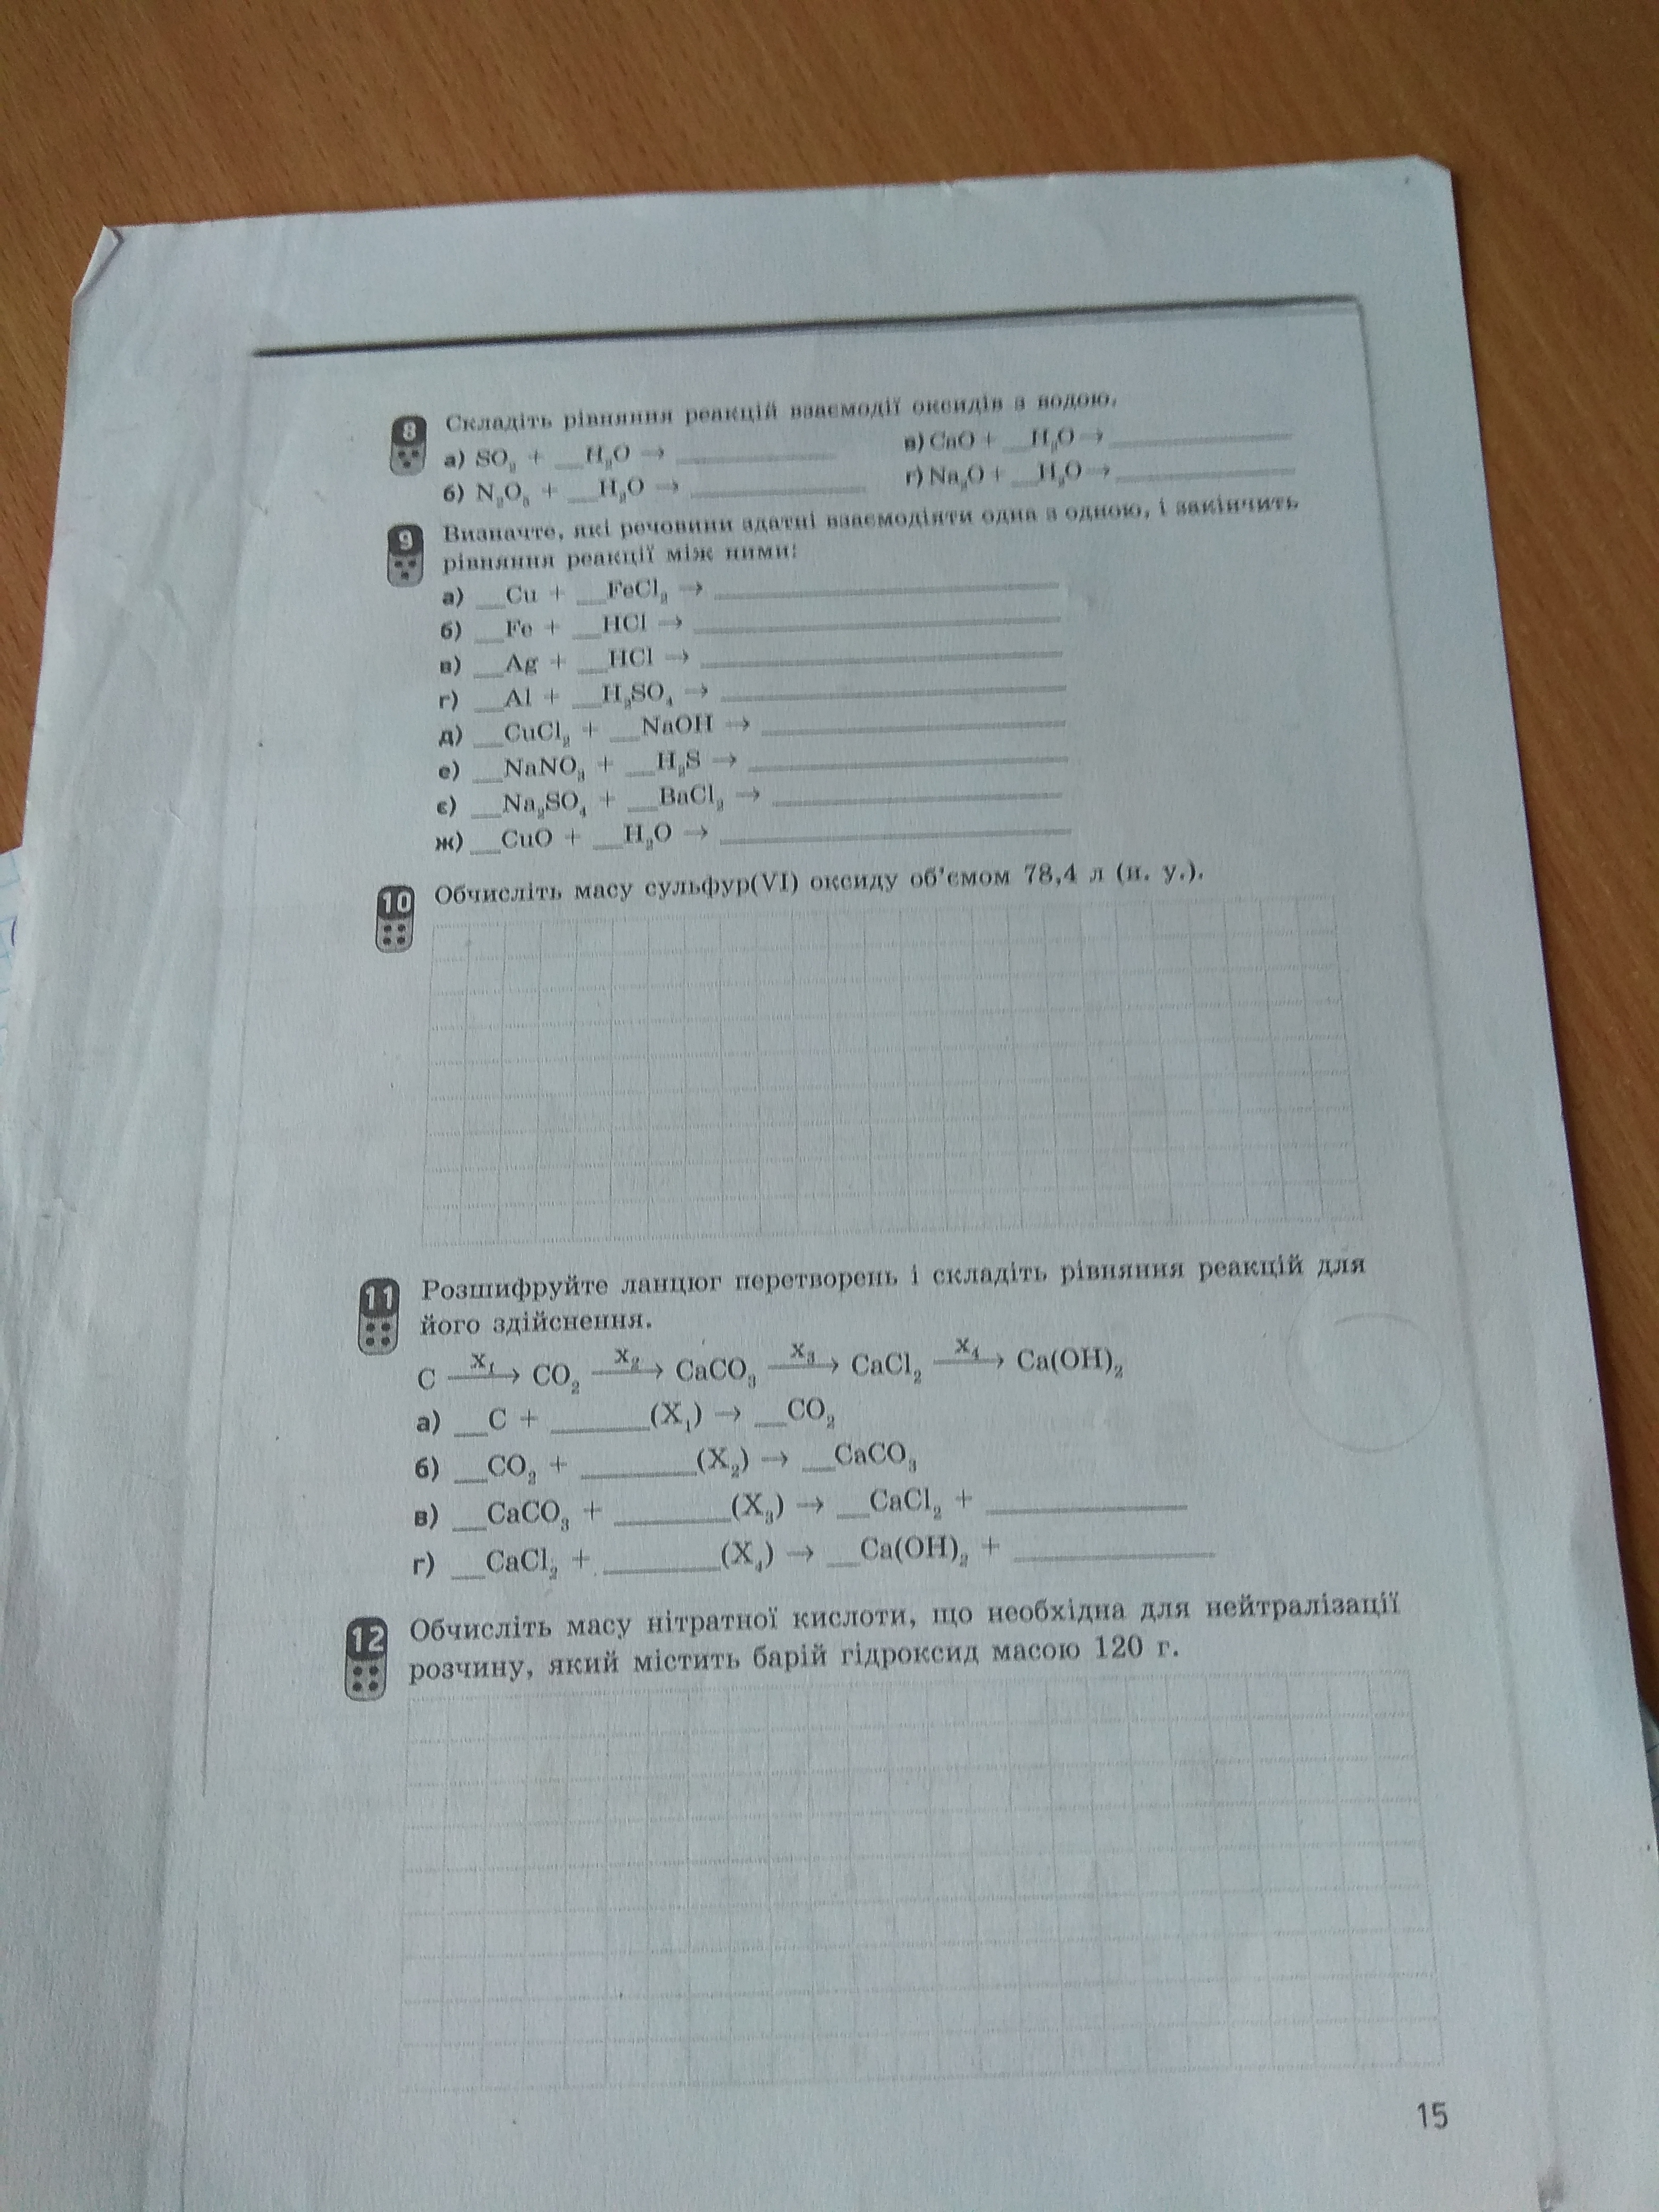 8 Складіть рівняння реакцій взаємодії оксидів з водою.
а) SO₂ + __H₂O → ________ в) CaO + __H₂O → ________
б) N₂O₅ + __H₂O → ________ г) Na₂O + __H₂O → ________
9 Визначте, які речовини здатні взаємодіяти одна з одною, і закінчить
рівняння реакції між ними:
а) __Cu + __FeCl₂ → ________
б) __Fe + __HCl → ________
в) __Ag + __HCl → ________
г) __Al + __H₂SO₄ → ________
д) __CuCl₂ + __NaOH → ________
е) __NaNO₃ + __H₂S → ________
є) __Na₂SO₄ + __BaCl₂ → ________
ж) __CuO + __H₂O → ________
10 Обчисліть масу сульфур(VI) оксиду об'ємом 78,4 л (н. у.).
11 Розшифруйте ланцюг перетворень і складіть рівняння реакцій для
його здійснення.
C —X₁→ CO₂ —X₂→ CaCO₃ —X₃→ CaCl₂ —X₄→ Ca(OH)₂
а) __C + ______(X₁) → __CO₂
б) __CO₂ + ______(X₂) → __CaCO₃
в) __CaCO₃ + ______(X₃) → __CaCl₂ + ________
г) __CaCl₂ + ______(X₄) → __Ca(OH)₂ + ________
12 Обчисліть масу нітратної кислоти, що необхідна для нейтралізації
розчину, який містить барій гідроксид масою 120 г.
15